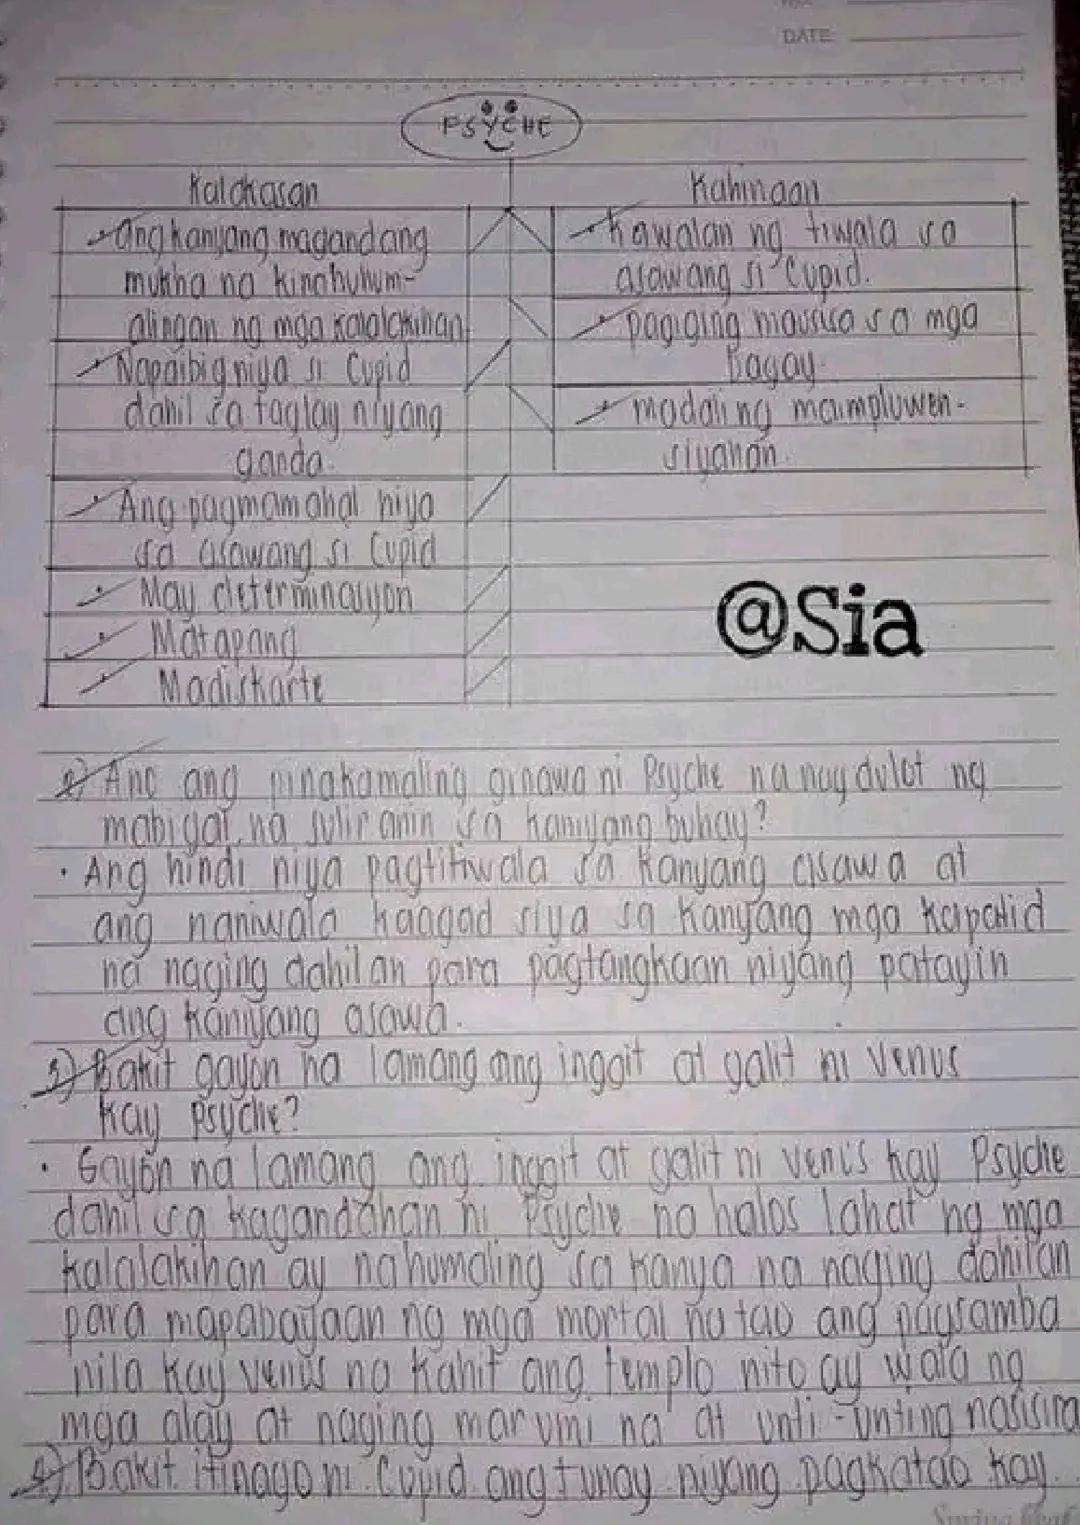 DATE:
PSYCHE
Kalakasan
Ang kanyang magandang
mukha na kinahuhum-
alingan ng mga kalalakihan
Napaibig niya si Cupid
dahil sa taglay niyang
ganda.
Ang pagmamahal niya
sa asawang si Cupid
May determinasyon
Matapang
Madiskarte
Kahinaan
Kawalan ng tiwala sa
asawang si Cupid.
pagiging mausisa sa mga
bagay.
madaling maimpluwen-
siyahan.
@Sia
2) Ano ang pinakamaling ginawa ni Psyche na nagdulot ng
mabigat na suliranin sa kanyang buhay?
• Ang hindi niya pagtitiwala sa kanyang asawa at
ang naniwala kaagad siya sa kanyang mga kapatid
na naging dahilan para pagtangkaan niyang patayin
ang kaniyang asawa.
3) Bakit gayon na lamang ang inggit at galit ni Venus
kay Psyche?
• Gayon na lamang ang inggit at galit ni Venus kay Psyche
dahil sa kagandahan ni Psyche na halos lahat ng mga
kalalakihan ay nahumaling sa kanya na naging dahilan
para mapabayaan ng mga mortal na tao ang pagsamba
nila kay Venus na kahit ang templo nito ay wala ng
mga alay at naging marumi na at unti-unting nasisira
4) Bakit itinago ni Cupid ang tunay niyang pagkatao kay